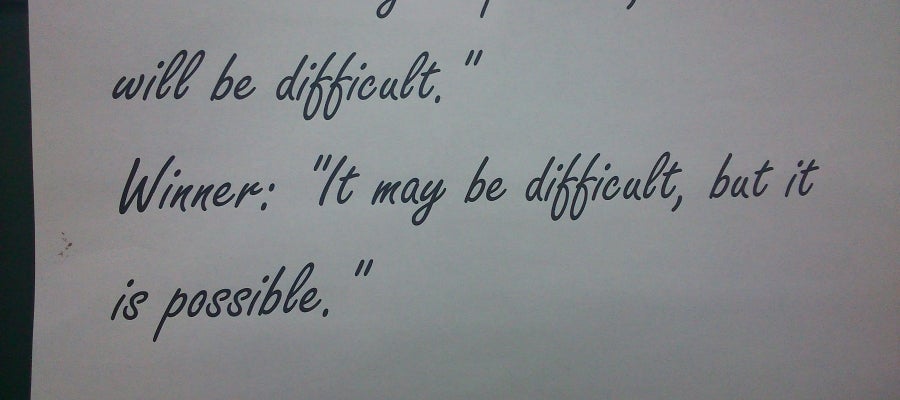 will be difficult."
Winner: "It may be difficult, but it
is possible."